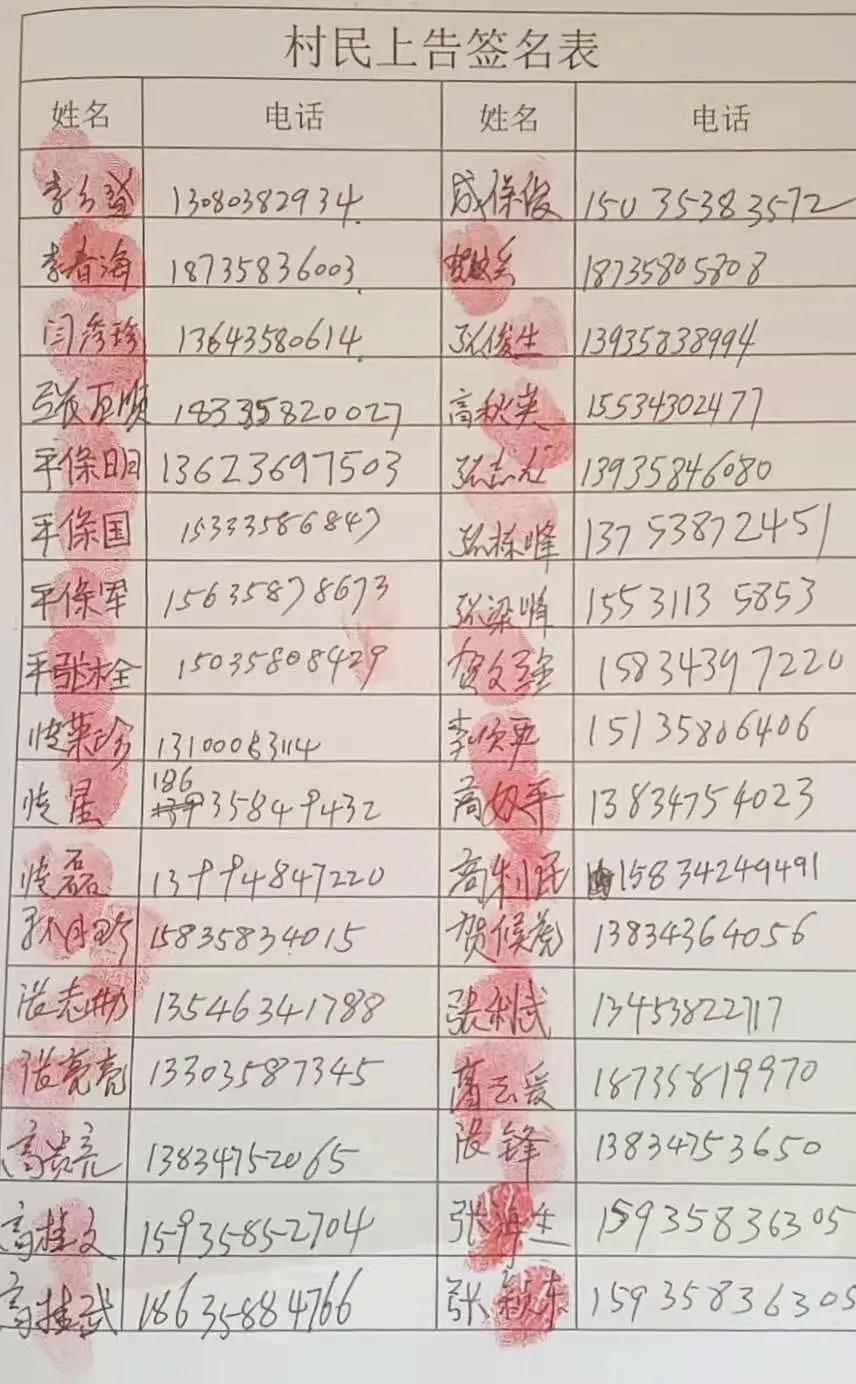 村民上告签名表
姓名 电话 姓名 电话
13080382934 成保俊 15035383572
李春海 18735836003 18735805808
闫秀珍 13643580614 张俊生 13935838994
张百顺 18335820027 高秋英 15534302477
平保明 13623697503 张志龙 13935846080
平保国 15333586847 张栋峰 13753872451
平保军 15635878673 张梁峰 15531135853
平张栓 15035808429 15834397220
李顺平 15135806406
186 35849432 高奴平 13834754023
13994847220 高利民 15834249491
15835834015 贺候虎 13834364056
张志彬 13546341788 张利武 13453822717
张亮亮 13303587345 高云爱 18735819970
高贵亮 13834752065 张锋 13834753650
高桂文 15935852704 张海生 15935836305
高桂武 18635884766 张秋东 15935836305